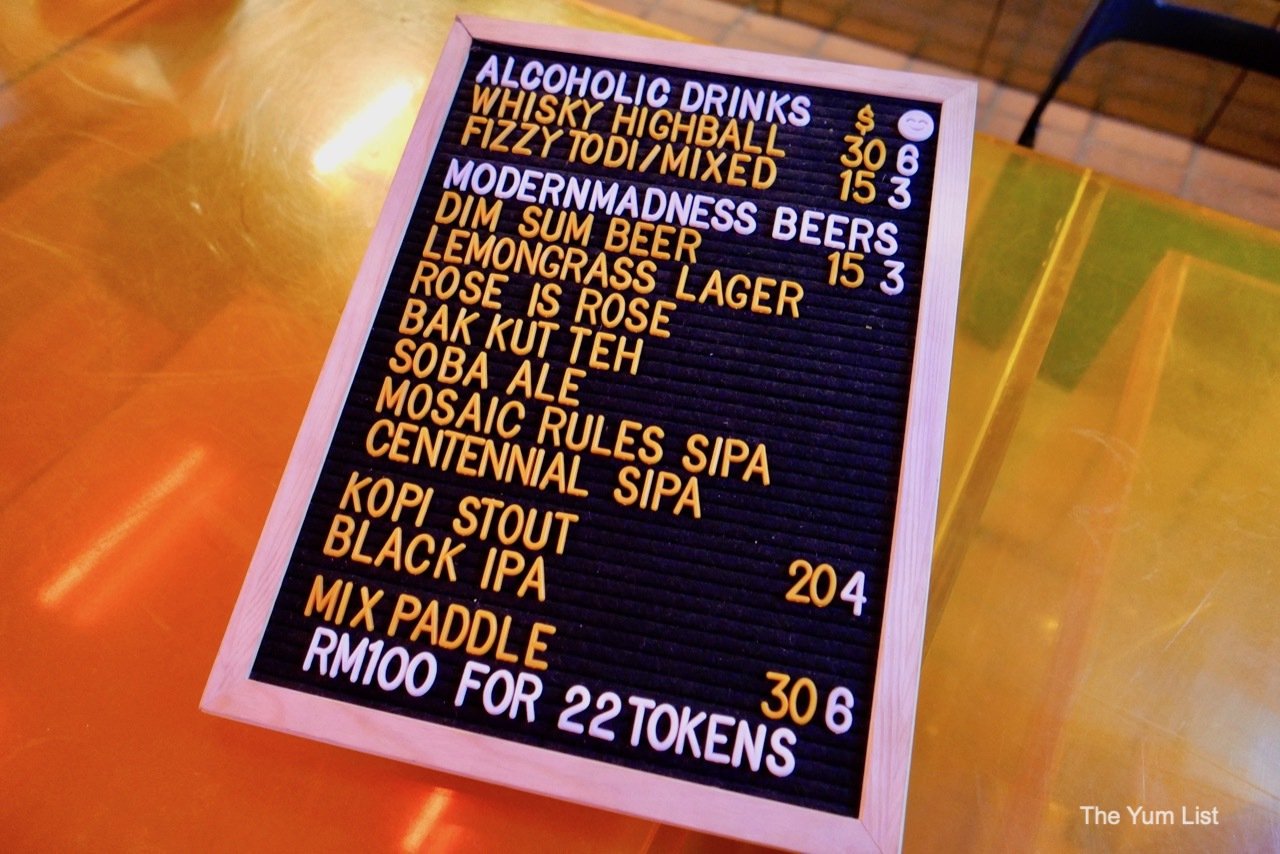 ALCOHOLIC DRINKS $
WHISKY HIGHBALL 30 6
FIZZY TODI/MIXED 15 3
MODERNMADNESS BEERS
DIM SUM BEER 15 3
LEMONGRASS LAGER
ROSE IS ROSE
BAK KUT TEH
SOBA ALE
MOSAIC RULES SIPA
CENTENNIAL SIPA
KOPI STOUT 20 4
BLACK IPA
MIX PADDLE 30 6
RM100 FOR 22 TOKENS
The Yum List